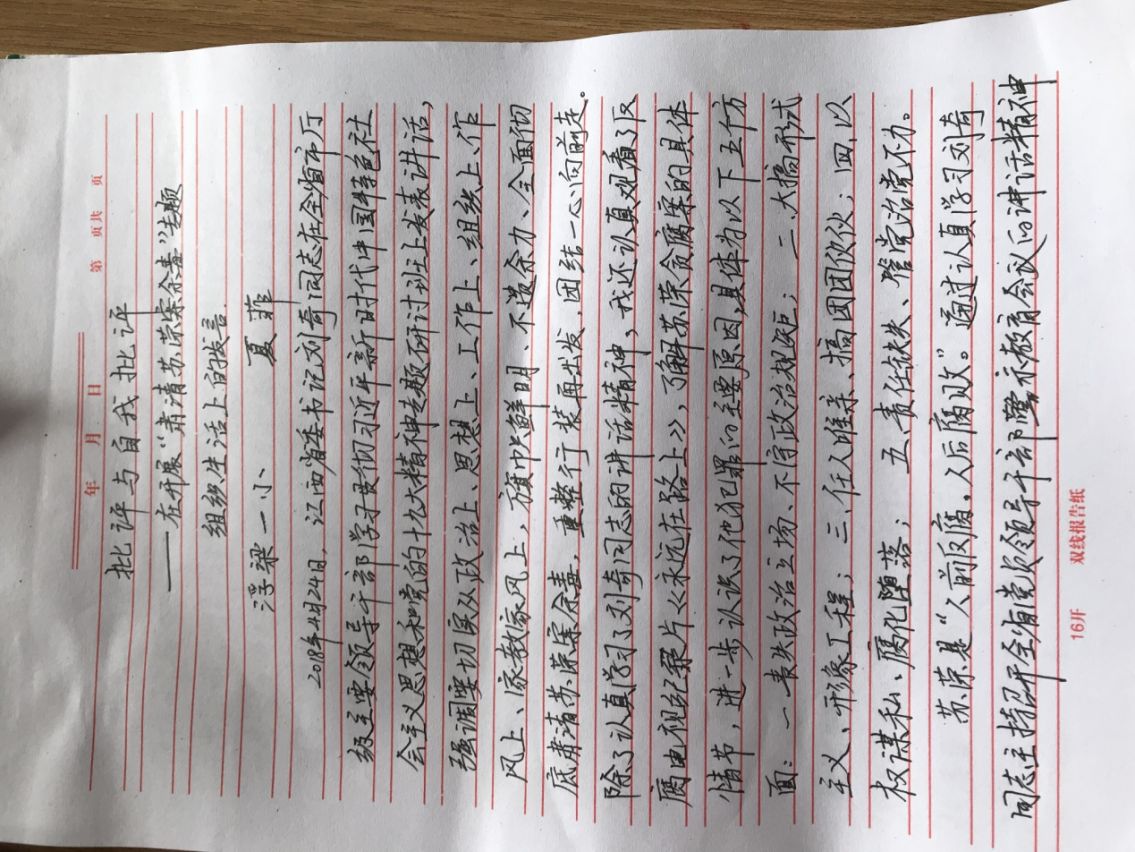 年 月 日 第 页共 页
批评与自我批评
——在开展“肃清苏荣案余毒”专题
组织生活上的发言
浮梁一小 夏菲
2018年4月24日，江西省委书记刘奇同志在全省市厅
级主要领导干部学习贯彻习近平新时代中国特色社
会主义思想和党的十九大精神专题研讨班上发表讲话，
强调要切实从政治上、思想上、工作上、组织上、作
风上、家教家风上，旗帜鲜明、不遗余力、全面彻
底肃清苏荣案余毒，重整行装再出发，团结一心向前走。
除了认真学习了刘奇同志的讲话精神，我还认真观看了反
腐电视纪录片《永远在路上》，了解苏荣贪腐案的具体
情节，进一步认识了他犯罪的主要原因，具体为以下五方
面：一丧失政治立场、不守政治规矩；二、大搞形式
主义、形象工程；三、任人唯亲、搞团团伙伙；四、以
权谋私、腐化堕落；五、责任缺失、管党治党不力。
苏荣是“人前反腐，人后腐败”。通过认真学习刘奇
同志主持召开全省党员领导干部警示教育会议的讲话精神
16开 双线报告纸